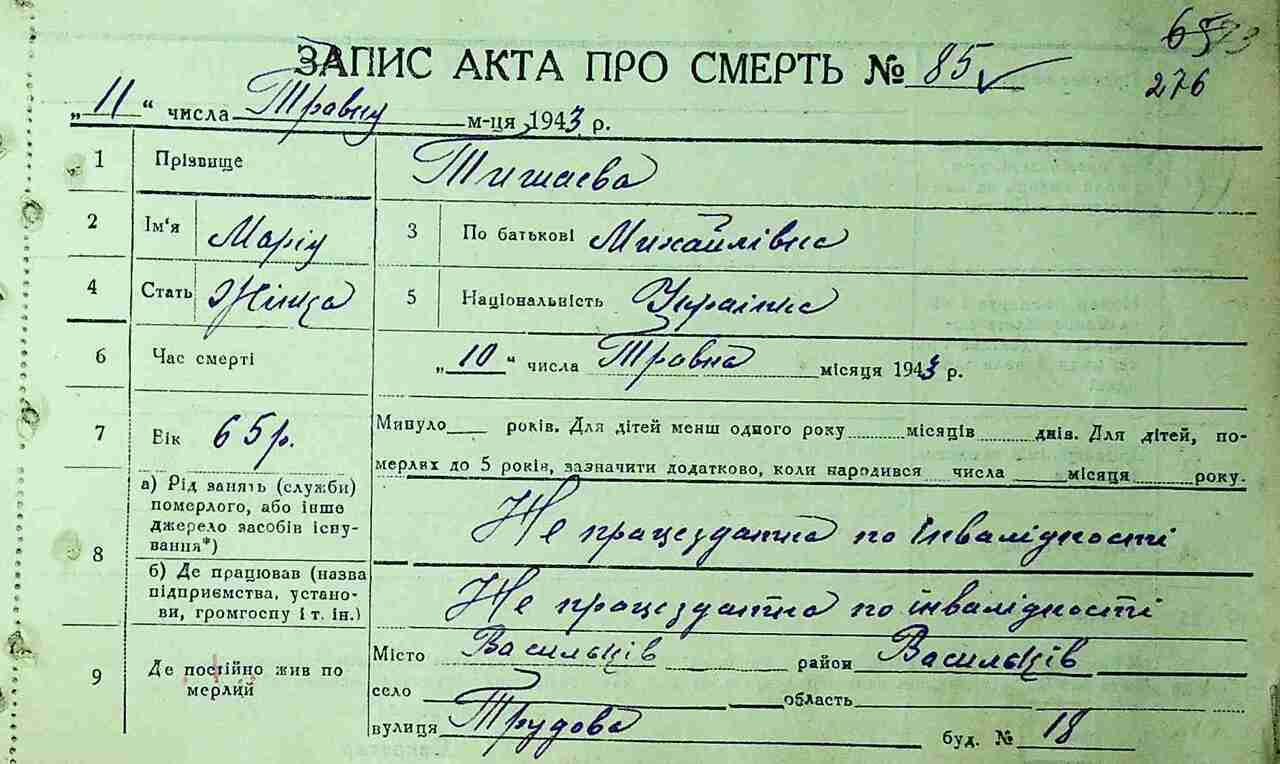 276
ЗАПИС АКТА ПРО СМЕРТЬ № 85
„11“ числа Травня м-ця 1943 р.
1 Прізвище Тишаева
2 Ім'я Марія 3 По батькові Михайлівна
4 Стать Жінка 5 Національність Українка
6 Час смерті „10“ числа Травня місяця 1943 р.
7 Вік 65 р. Минуло ___ років. Для дітей менш одного року ........ місяців ........ днів. Для дітей, по-
мерлих до 5 років, зазначити додатково, коли народився числа ___ місяця ........ року.
8 а) Рід занять (служби)
померлого, або інше
джерело засобів існу-
вання*)
Не працездатна по Інвалідності
б) Де працював (назва
підприємства, устано-
ви, громгоспу і т. ін.)
Не працездатна по інвалідності
9 Де постійно жив по
мерлий
Місто Васильків район Васильків
село область
вулиця Трудова буд. № 18